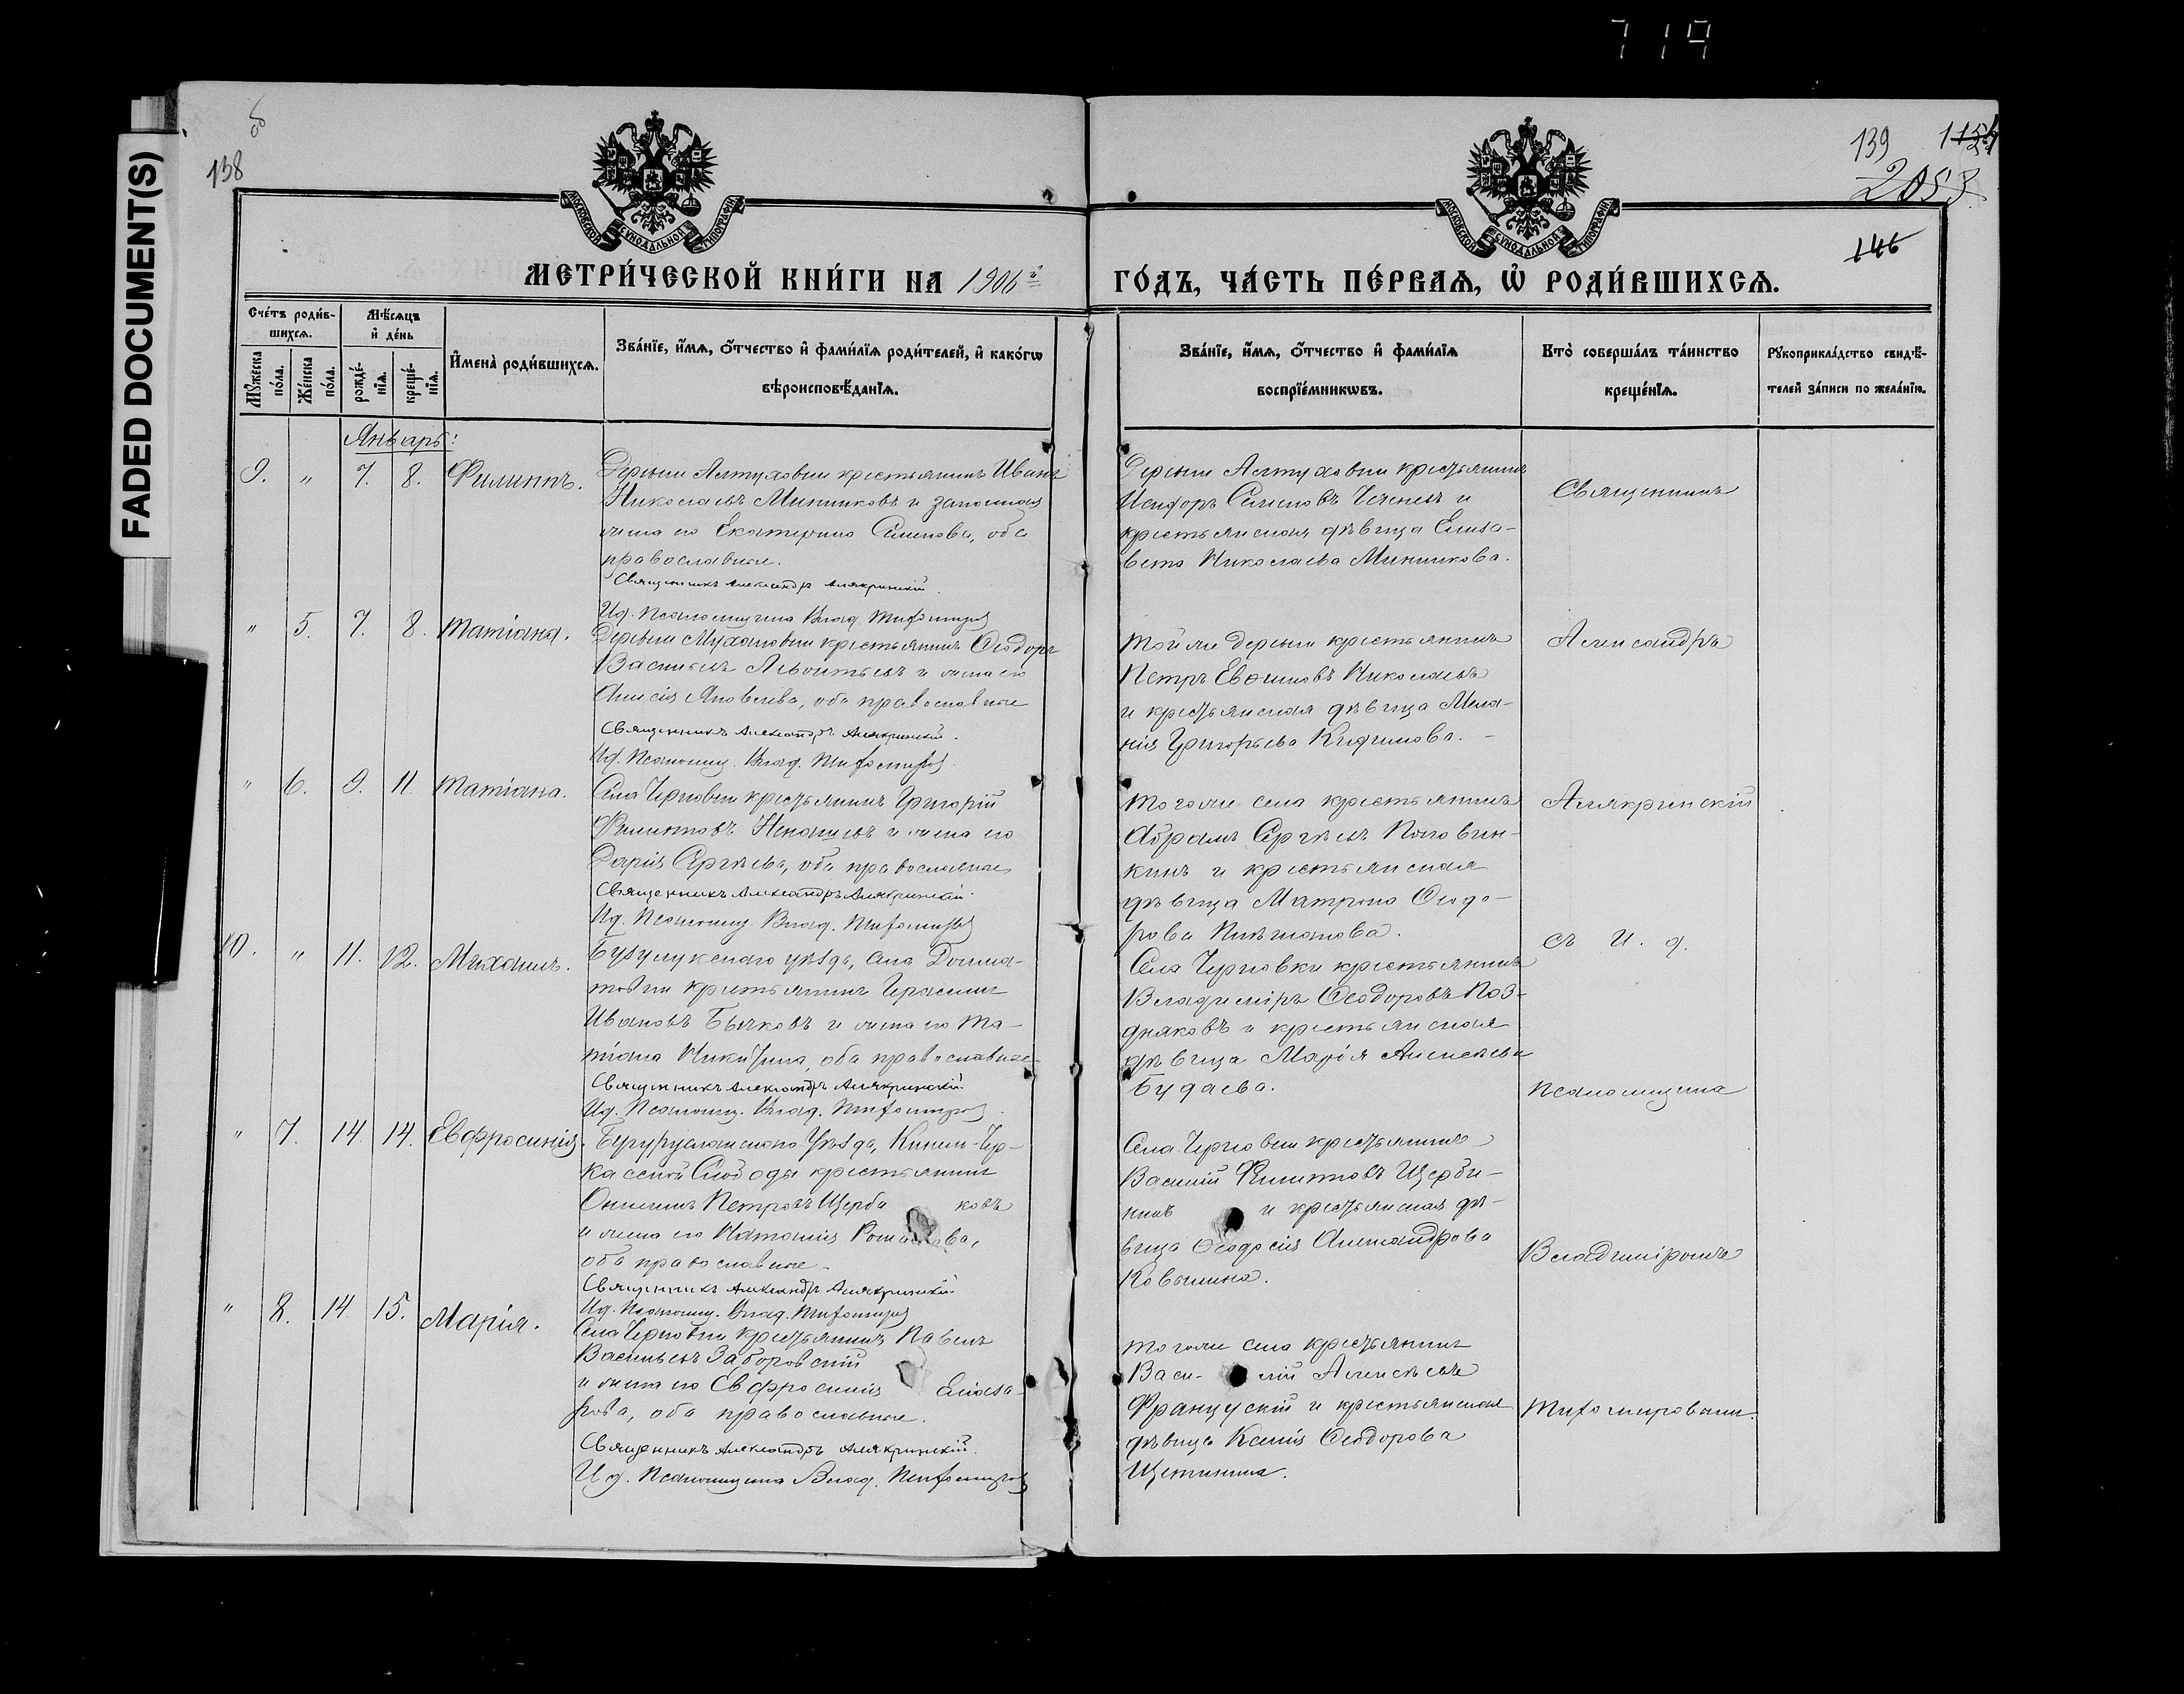 719
FADED DOCUMENT(S)
138
139
2053
146
МОСКОВСКОЙ СѴНОДАЛЬНОЙ ТИПОГРАФІИ
МОСКОВСКОЙ СѴНОДАЛЬНОЙ ТИПОГРАФІИ
МЕТРИ́ЧЕСКОЙ КНИ́ГИ НА 1906й
ГО́ДЪ, ЧА́СТЬ ПЕ́РВАѦ, Ѡ҆ РОДИ́ВШИХСѦ.
Сче́тъ роди́в-
шихсѧ.
Мꙋ́жеска по́ла.
Же́нска по́ла.
Мѣ́сѧцъ
и҆ де́нь
рожде́-
нїѧ.
креще́-
нїѧ.
И҆мена̀ роди́вшихсѧ.
Зва́нїе, и҆́мѧ, ѻ҆́тчество и҆ фами́лїѧ роди́телей, и҆ како́гѡ
вѣроисповѣ́данїѧ.
Зва́нїе, и҆́мѧ, ѻ҆́тчество и҆ фами́лїѧ
воспрїе́мникѡвъ.
Кто̀ соверша́лъ та́инство
креще́нїѧ.
Рꙋкоприкла́дство свидѣ́-
телей за́писи по жела́нїю.
Январь:
9. " 7. 8. Филиппъ.
Деревни Алтуховки крестьянинъ Иванъ
Николаевъ Минниковъ и законная
жена его Екатерина Семенова, оба
православные.
Священникъ Александръ Алякринскій.
Ид. Псаломщика Влад. Тифомировъ
Деревни Алтуховки крестьянинъ
Исидоръ Семеновъ
крестьянская дѣвица Елиза-
вета Николаева Минникова.
Священникъ
" 5. 7. 8. Татіана.
Деревни Мухановки крестьянинъ Ѳеодоръ
Васильевъ Леонтьевъ и жена его
Анисія Яковлева, оба православные
Священникъ Александръ Алякринскій.
Ид. Псаломщ. Влад. Тифомировъ
Той же деревни крестьянинъ
Петръ Евѳимовъ Николаевъ
и крестьянская дѣвица Мела-
нія Григорьева
Александръ
" 6. 9. 11. Татіана.
Села Черновки крестьянинъ Григорій
Филипповъ и жена его
Дарія Сергѣева, оба православные
Священникъ Александръ Алякринскій.
Ид. Псаломщ. Влад. Тифомировъ
Того же села крестьянинъ
Абрамъ Сергѣевъ Половин-
кинъ и крестьянская
дѣвица Матрона Ѳеодо-
рова
Алякринскій
10. " 11. 12. Михаилъ.
Бузулукскаго уѣзда, села Домма-
товки крестьянинъ Герасимъ
Ивановъ Бычковъ и жена его Та-
тіана Никитина, оба православные
Священникъ Александръ Алякринскій
Ид. Псаломщ. Влад. Тифомировъ.
Села Черновки крестьянинъ
Владиміръ Ѳеодоровъ Поз-
дняковъ и крестьянская
дѣвица Марія Алексѣева
Будаева.
съ И. д.
псаломщика
" 7. 14. 14. Евфросинія.
Бугурусланскаго Уѣзда, Кинель-Чер-
касской Слободы крестьянинъ
Онисимъ Петровъ Щербаковъ
и жена его Наталія Романова,
оба православные.
Священникъ Александръ Алякринскій
Ид. Псаломщ. Влад. Тифомировъ
Села Черновки крестьянинъ
Василій Филипповъ Щерби-
нинъ и крестьянская дѣ-
вица Ѳеодосія Александрова
Владиміромъ
" 8. 14. 15. Марія.
Села Черновки крестьянинъ Павелъ
Васильевъ Заборовскій
и жена его Евфросинія Елиза-
рова, оба православные.
Священникъ Александръ Алякринскій.
Ид. Псаломщика Влад. Тифомировъ
Того же села крестьянинъ
Васи-лій Алексѣевъ
Французскій и крестьянская
дѣвица Ксенія Ѳеодорова
Щетинина.
Тифомировымъ.